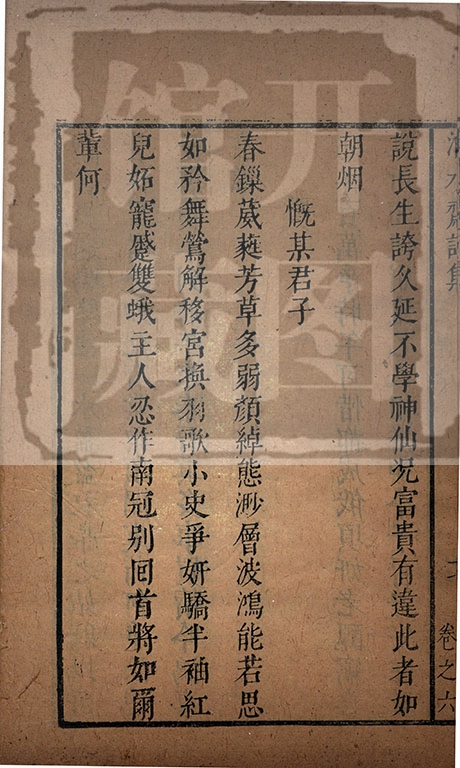 說長生誇久延不學神仙況富貴有違此者如
朝烟
慨某君子
春鏁葳蕤芳草多弱顏綽態渺層波鴻能若思
如矜舞鶯解移宮換羽歌小史爭妍驕半袖紅
兒妬寵蹙雙蛾主人忍作南冠别囘首將如爾
輩何
卷之六
開圖
館藏